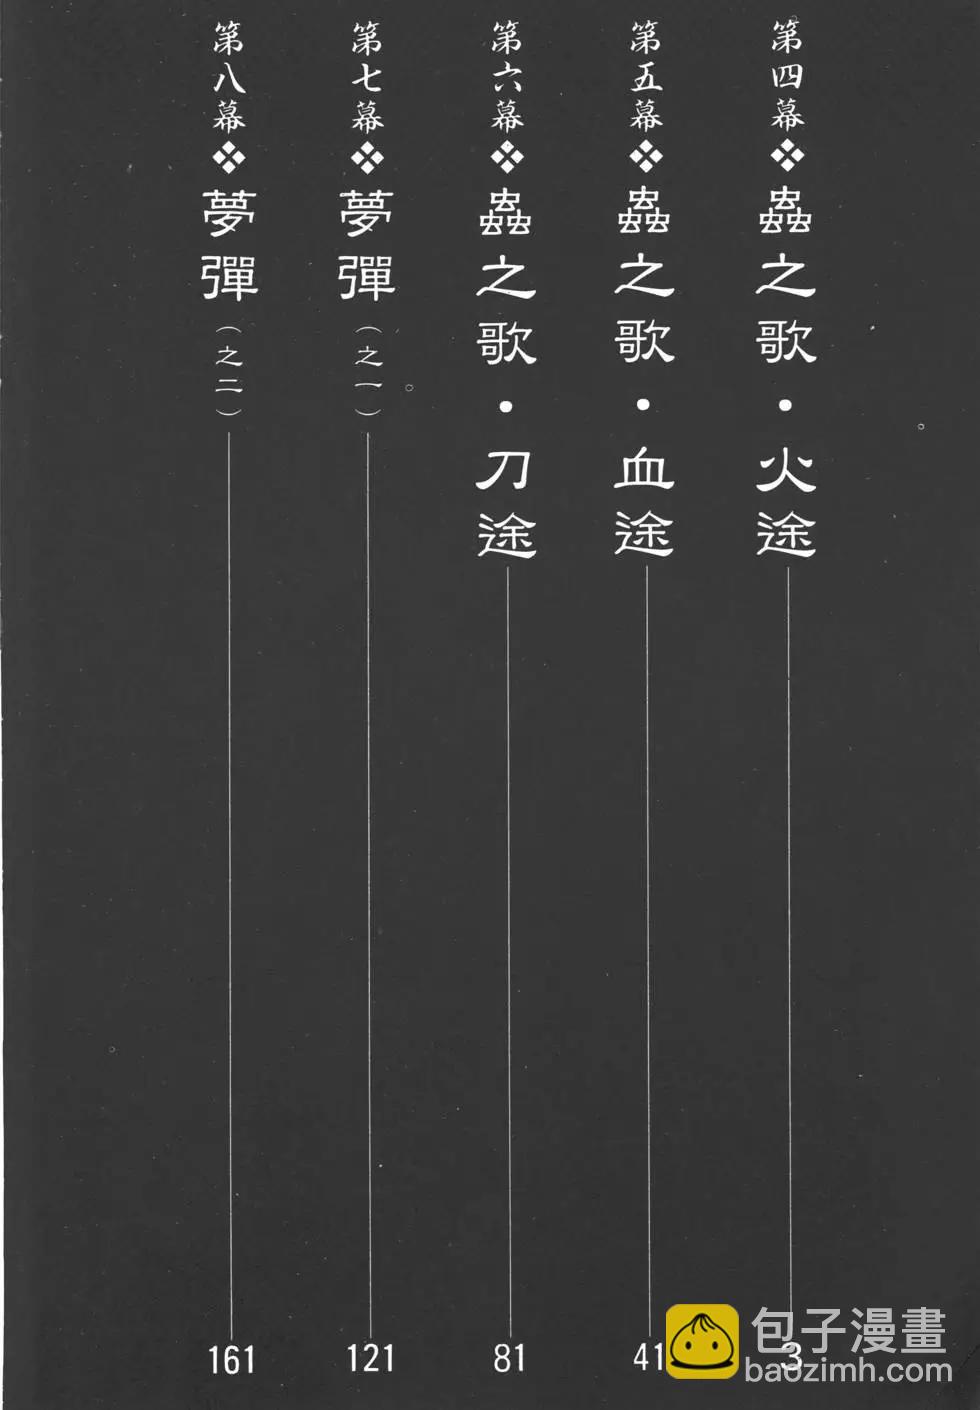 第四幕❖蟲之歌・火途 3
第五幕❖蟲之歌・血途 41
第六幕❖蟲之歌・刀途 81
第七幕❖夢彈（之一） 121
第八幕❖夢彈（之二） 161
包子漫畫
baozimh.com